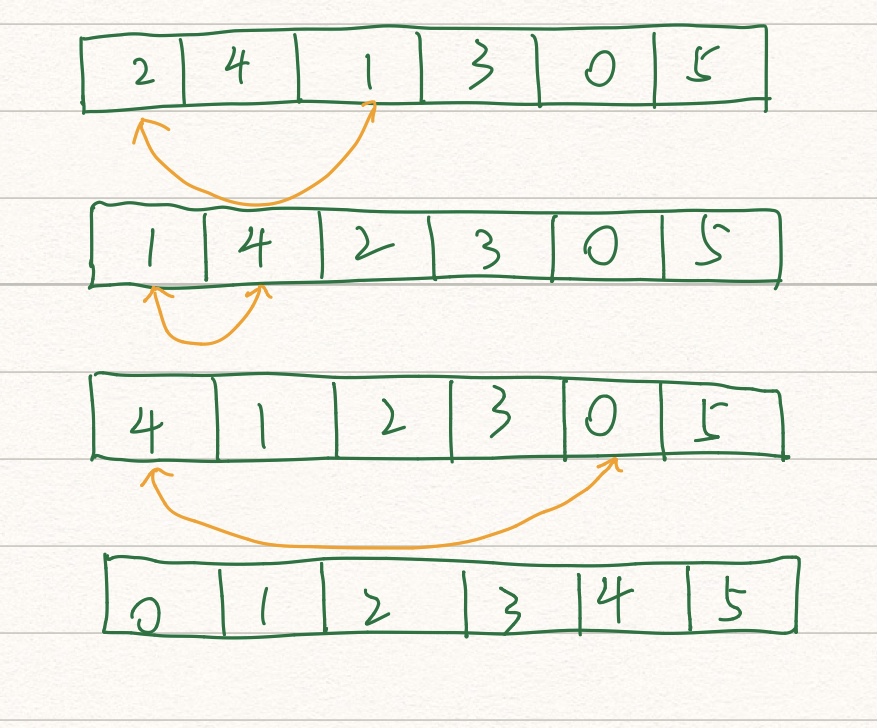 2 4 1 3 0 5
1 4 2 3 0 5
4 1 2 3 0 5
0 1 2 3 4 5